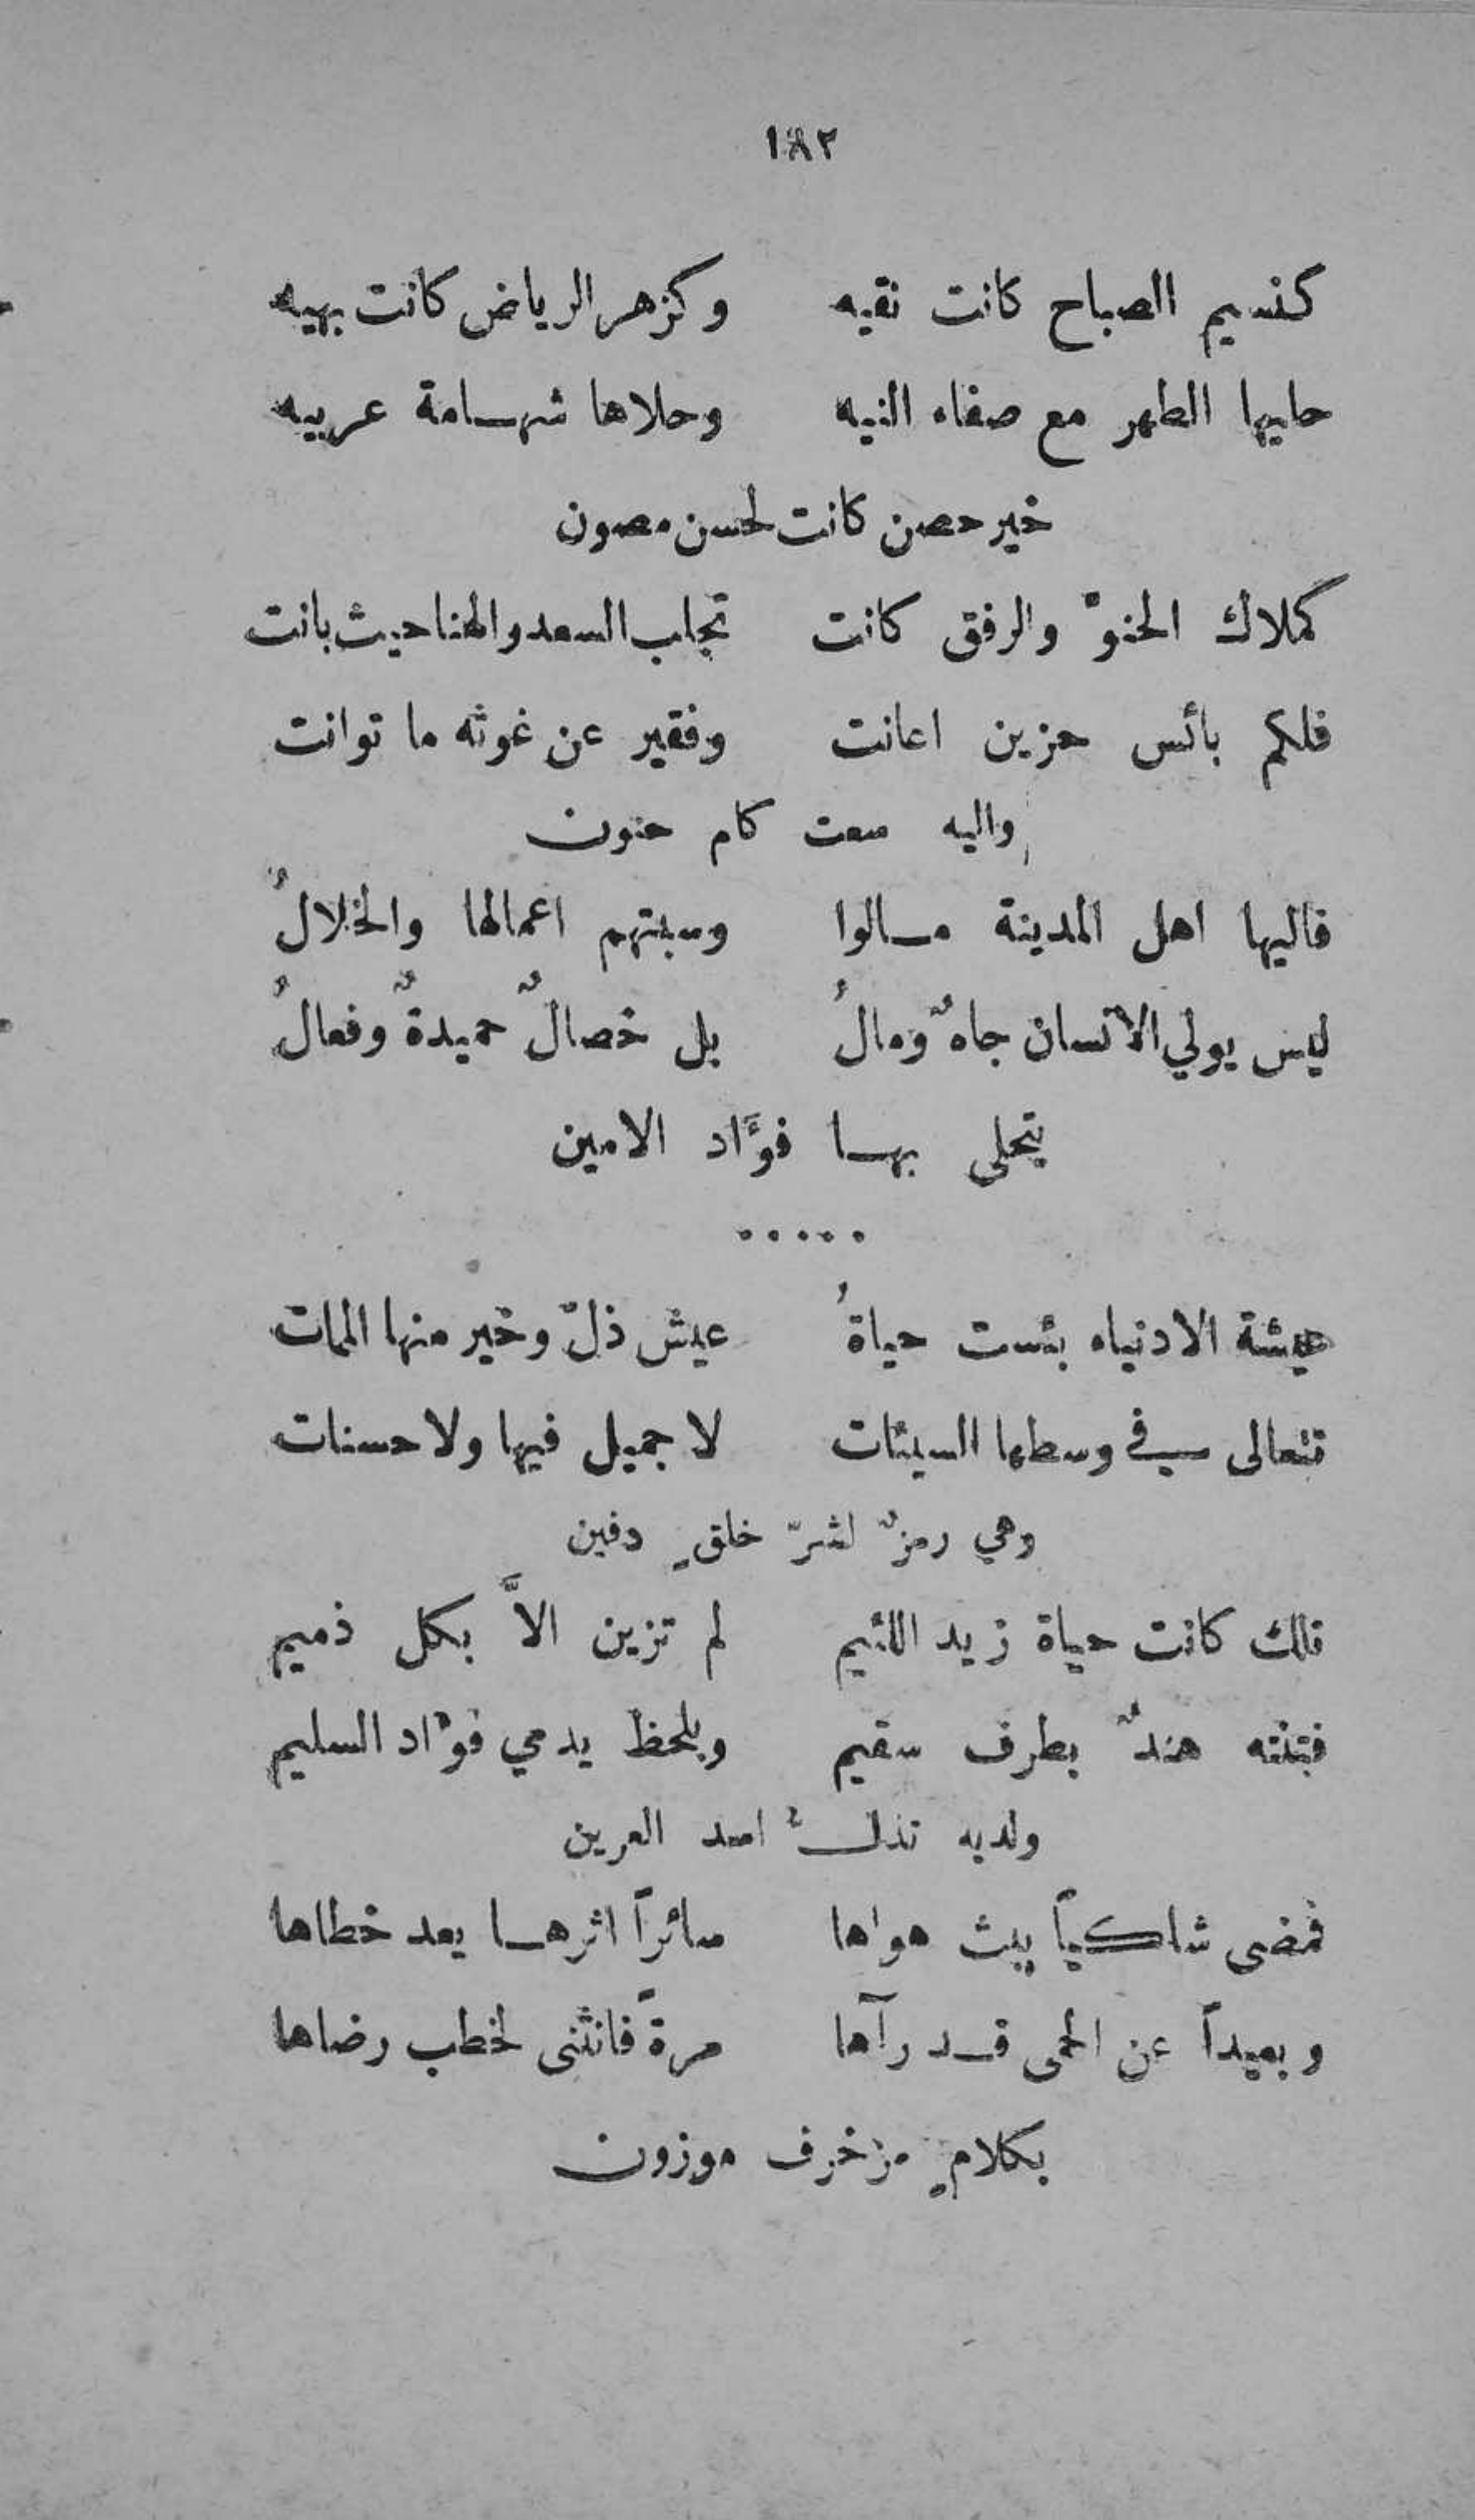 ١٨٢
كنسيم الصباح كانت نقيه وكزهر الرياض كانت بهيه
حليها الطهر مع صفاء النيه وحلاها شهامة عربيه
خير حصن كانت لحسن مصون
كملاك الحنوّ والرفق كانت تجلب السعد والهنا حيث بانت
فلكم بائس حزين اعانت وفقير عن غوثه ما توانت
واليه سعت كام حنون
فاليها اهل المدينة مالوا وسبتهم اعمالها والخلالُ
ليس يولي الانسان جاهٌ ومالُ بل خصالٌ حميدةٌ وفعالُ
يتحلى بها فؤَاد الامين
.....
عيشة الادنياء بئست حياةُ عيش ذلّ وخير منها الممات
تتعالى في وسطها السيئات لا جميل فيها ولا حسنات
وهي رمزٌ لشرّ خلقٍ دفين
تلك كانت حياة زيد اللئيم لم تزين الاَّ بكل ذميم
فتنته هندٌ بطرف سقيم وبلحظ يدمي فؤاد السليم
ولديه تذلّ اسد العرين
فمضى شاكياً يبث هواها سائراً اثرها يعد خطاها
وبعيداً عن الحمى قد رآها مرةً فانثنى لخطب رضاها
بكلامٍ مزخرف موزون